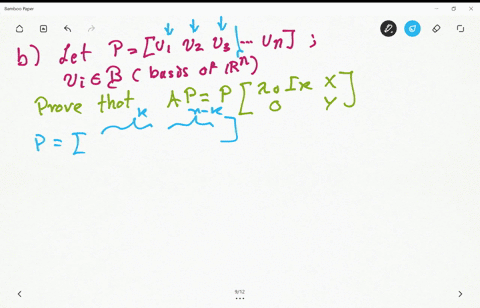 Bamboo Paper
b) Let P = [v₁ v₂ v₃ ... vₙ] ;
vᵢ ∈ B ( basis of ℝⁿ)
Prove that AP = P [ λ₀Iₖ X
0 Y ]
k n-k
P = [ ]
9/12